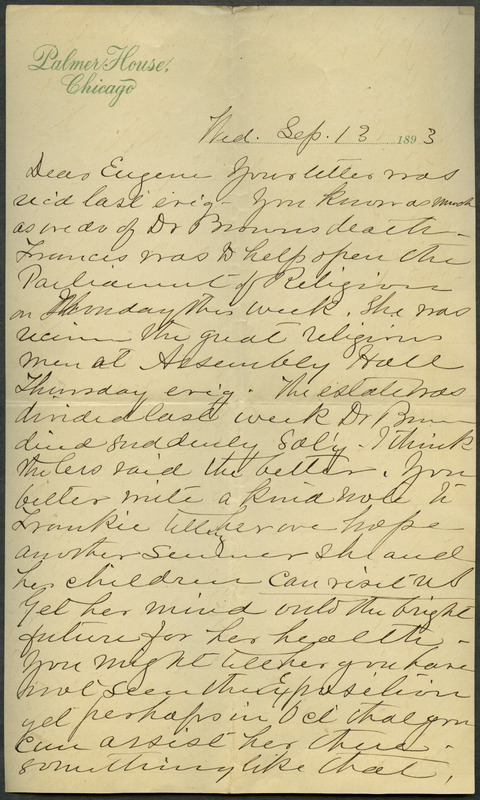 Palmer House,
Chicago
Wed. Sep. 13 1893
Dear Eugene Your letter was
rec'd last evig - You know as much
as we do of Dr Browns death -
Frances was to help open the
Parliament of Religion
on Monday this week. She was
the great religious
men at Assembly Hall
Thursday evig. The estate was
divided last week Dr Brown
died suddenly Saty - I think
the less said the better. You
better write a kind note to
Frankie telling her we hope
another summer she and
her children can visit us
Get her mind onto the bright
future for her health -
You might tell her you have
not seen the Exposition
yet perhaps in Oct that you
can assist her then -
something like that,